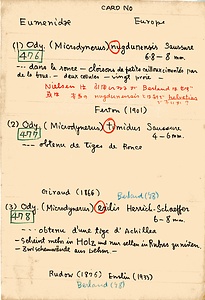 CARD NO
Eumenidae Europe
(1) Ody. (Microdynerus) nugdunensis Saussure
476 6-8 mm.
--- dans la ronce - cloisons de petits cailloux cimentés par
de la boue. - deux - vingt proie -
Nielsen Berland
nugdunensis helvetius
Ferton (1901)
(2) Ody. (Microdynerus) timidus Saussure
477 4-6 mm.
--- obtenu de tiges de Ronce
Giraud (1866) Berland ('28)
(3) Ody. (Microdynerus) exilis Herrich-Schaeffer
478 6-8 mm.
--- obtenu d'une tige d'Achillea
- scheint mehr in Holz und nur selten in Rubus zu nisten.
- Zwischenwände aus Lehm -
Rudow Enslin
Berland ('28)